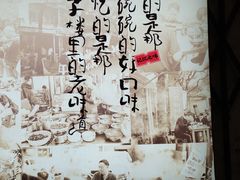 的是那
碗碗的好口味
忆的是那
子楼里的老味道